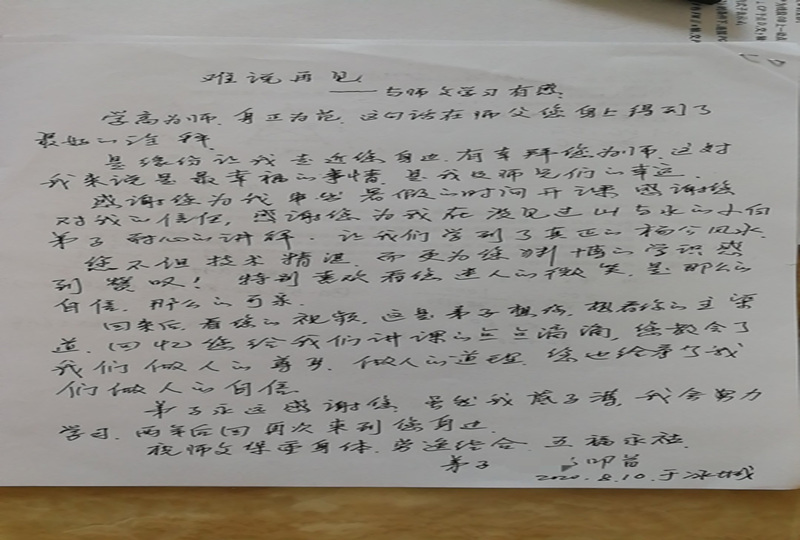 难说再见
——与师父学习有感
学高为师，身正为范，这句话在师父您身上得到了
最好的诠释。
是缘份让我走近您身边，有幸拜您为师，这对
我来说是最幸福的事情，是我及师兄们的幸运。
感谢您为我 暑假的时间开课，感谢您
对我的信任，感谢您为我在没见过山与水的小白
弟子耐心的讲解，让我们学到了真正的杨公风水，
您不但技术精湛，而更为您渊博的学识感
到赞叹！特别喜欢看您迷人的微笑，是那么的
自信，那么的可亲。
回来后，看您的视频，这是弟子想您，想看您的主渠
道，回忆您给我们讲课的点点滴滴，您教会了
我们做人的尊严，做人的道理，您也给予了我
们做人的自信。
弟子永远感谢您，虽然我底子薄，我会努力
学习，两年后回再次来到您身边。
祝师父保重身体，劳逸结合，五福永社
弟子 叩首
2020.8.10.于冰城